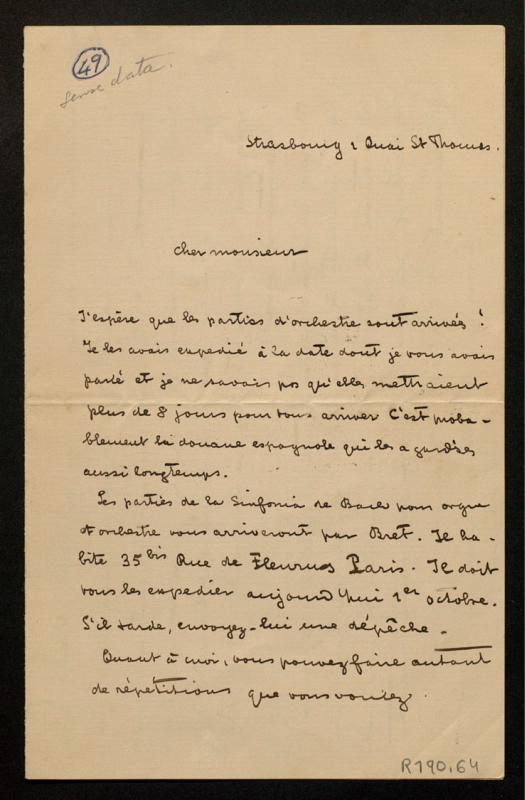 49
sense data.
Strasbourg 1 Quai St Thomas.
cher monsieur
J'espère que les parties d'orchestre sont arrivées !
Je les avais expedié à la date dont je vous avais
parlé et je ne savais pas qu'elles mettraient
plus de 8 jours pour vous arriver C'est proba-
blement la douane espagnole qui les a gardées
aussi longtemps.
Les parties de la Sinfonia de Bach pour orgue
et orchestre vous arriveront par Bret. Il ha-
bite 35 bis Rue de Fleurus Paris. Il doit
vous les expedier aujourd'hui 1er octobre.
S'il tarde, envoyez-lui une dépêche.
Quant à moi, vous pouvez faire autant
de répétitions que vous voulez.
R190.64